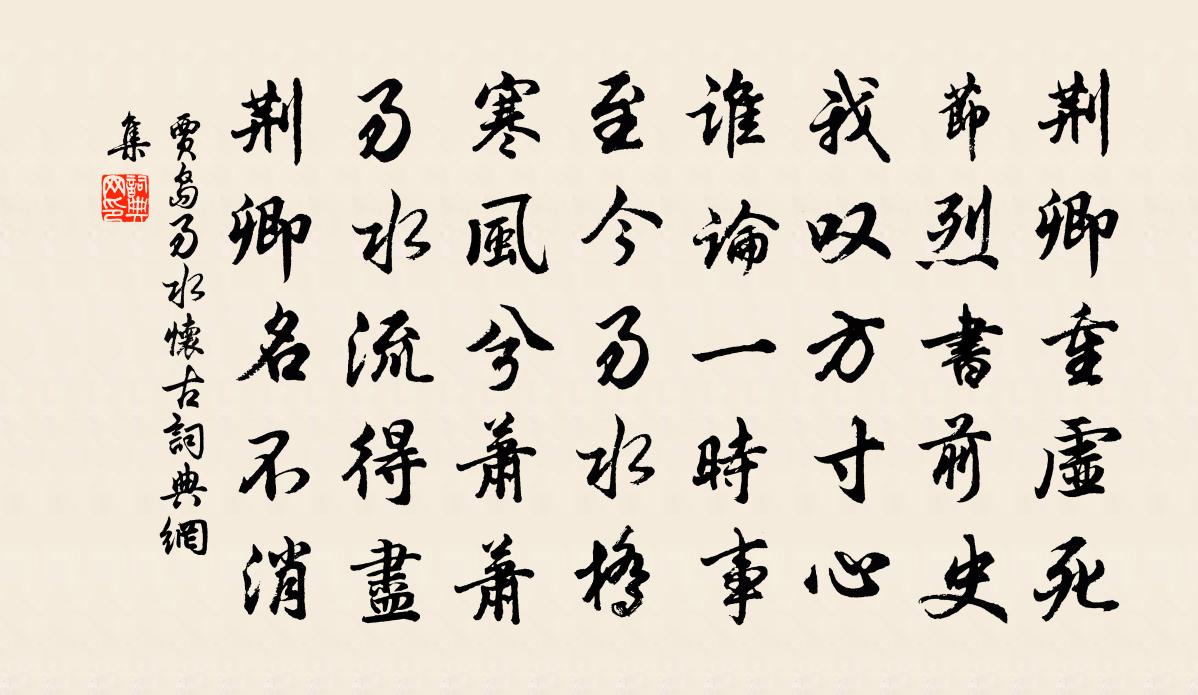 荆卿重虛死
節烈書前史
我叹方寸心
誰論一時事
至今易水橋
寒風兮蕭蕭
易水流得盡
荆卿名不消
賈島易水懷古詞典網
集
詞典
网印